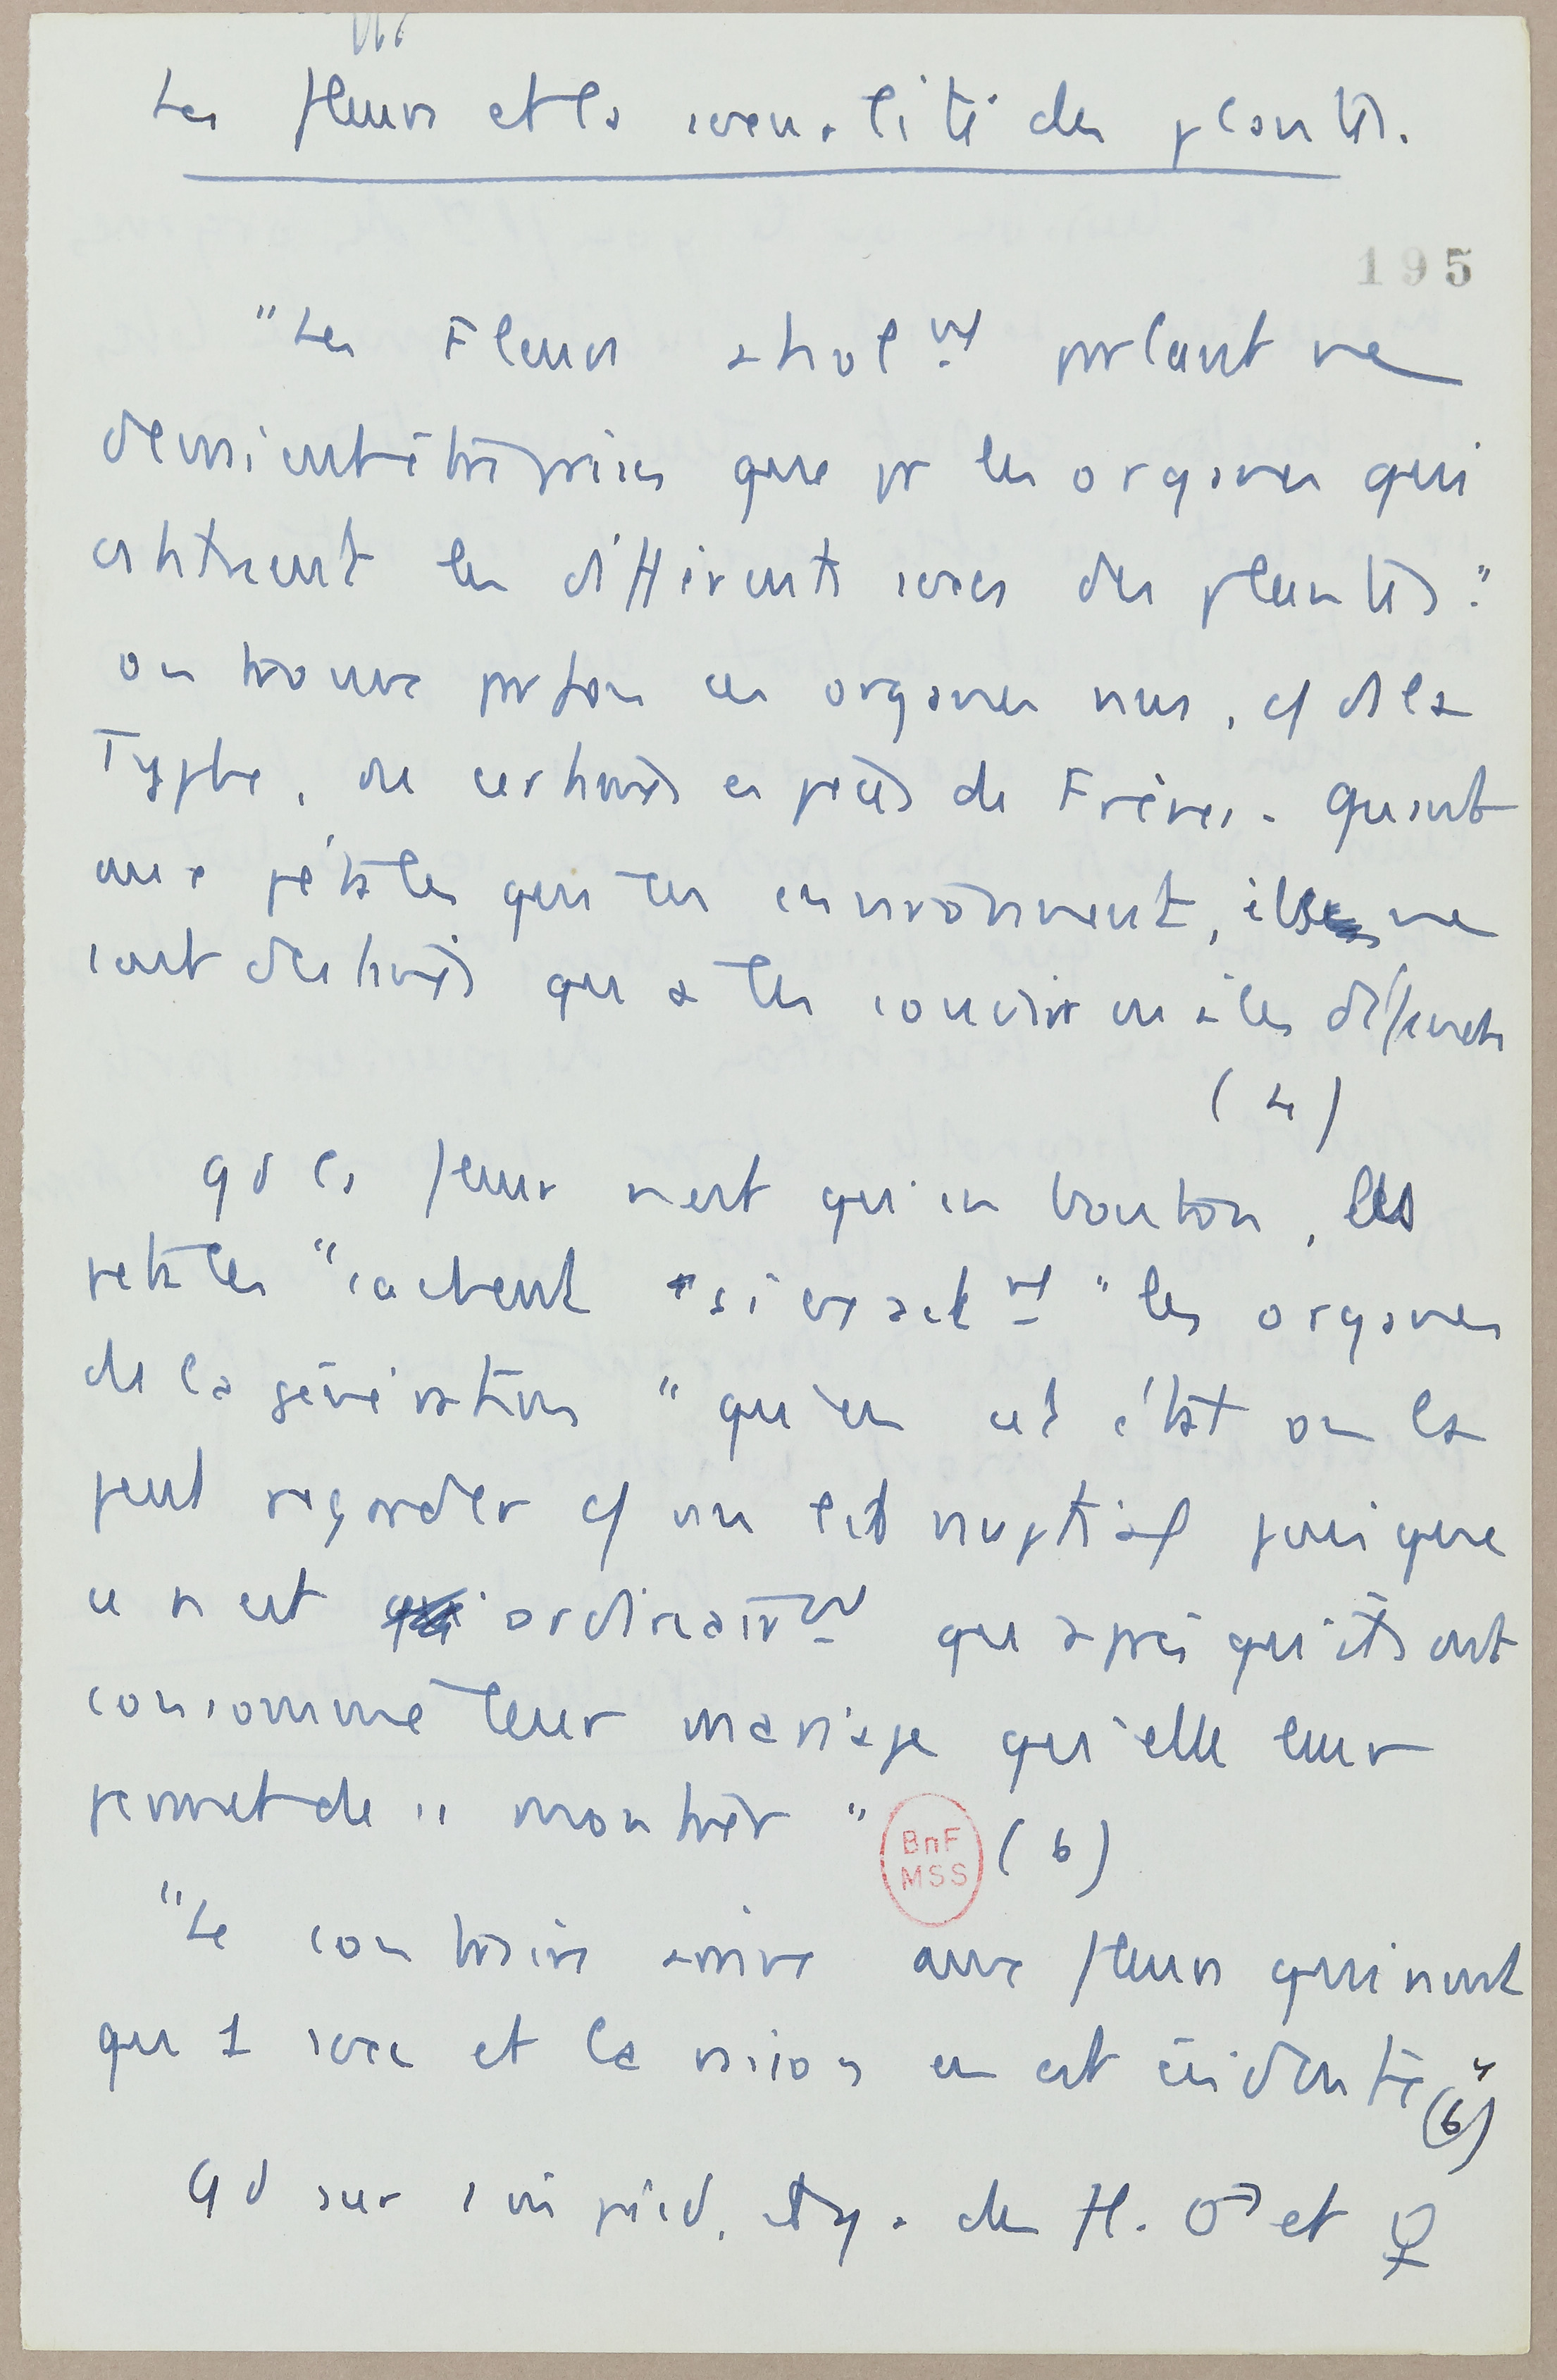 Les fleurs et la sexualité des plantes.
195
"Les Fleurs absolt parlant ne
devraient être prises que pr les organes qui
constituent les différents sexes des plantes."
On trouve parfois ces organes nus, cf ds la
Typha, ou certaines espèces de Frênes. Quant
aux pétales qui les environnent, ils ne
sont destinés qu'à les couvrir ou à les défendre
(4)
Qd la fleur n'est qu'en bouton, les
petales "cachent si exactt" les organes
de la génération "qu'en cet état on la
peut regarder cf un lit nuptial puisque
ce n'est ordinairemt qu'après qu'ils ont
consommé leur mariage qu'elle leur
permet de se montrer" (6)
BnF
MSS
"Le contraire arrive aux fleurs qui n'ont
qu'1 sexe et la raison en est évidente" (6)
Qd sur 1 mi pied, il y a des fl. ♂ et ♀